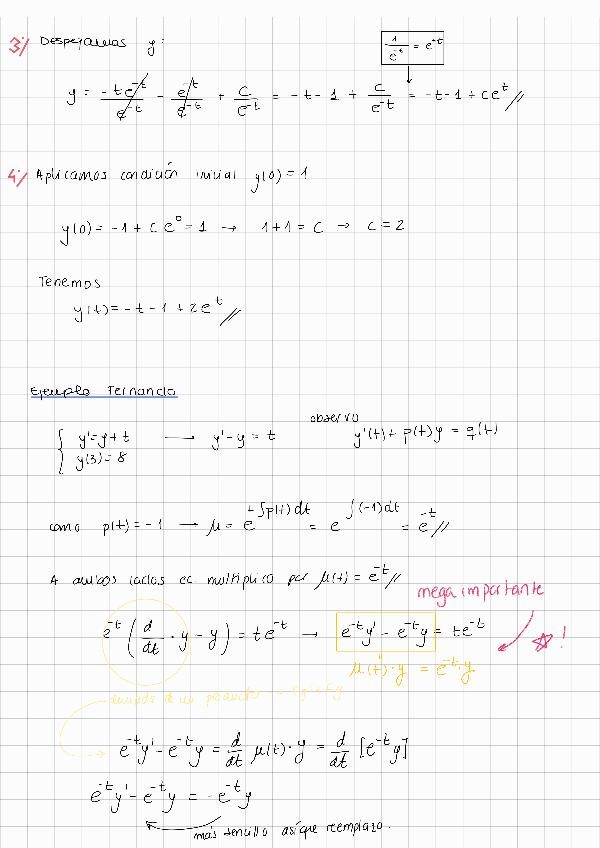 3:/ Despejamos y:
1/e^-t = e^-t
y = -te^-t/e^-t - e^-t/e^-t + c/e^-t = -t-1 + c/e^-t = -t-1+ce^t //
4:/ Aplicamos condición inicial y(0)=1
y(0) = -1 + c e^0 = 1 → 1+1 = c → c = 2
Tenemos
y(t) = -t-1+2e^t //
Ejemplo Fernando
observo
{ y'=y+t → y'-y = t y'(t)+p(t)y = q(t)
y(3)=8
como p(t)=-1 → μ = e^∫p(t)dt = e^∫(-1)dt = e^-t //
A ambos lados ec multiplico por μ(t) = e^-t //
mega importante
e^-t (d/dt · y - y) = te^-t → e^-t y' - e^-t y = te^-t ☆!
μ(t)·y = e^-t·y
derivada de un producto
e^-t y' - e^-t y = d/dt μ(t)·y = d/dt [e^-t y]
e^-t y' - e^-t y = -e^-t y
más sencillo así que reemplazo.